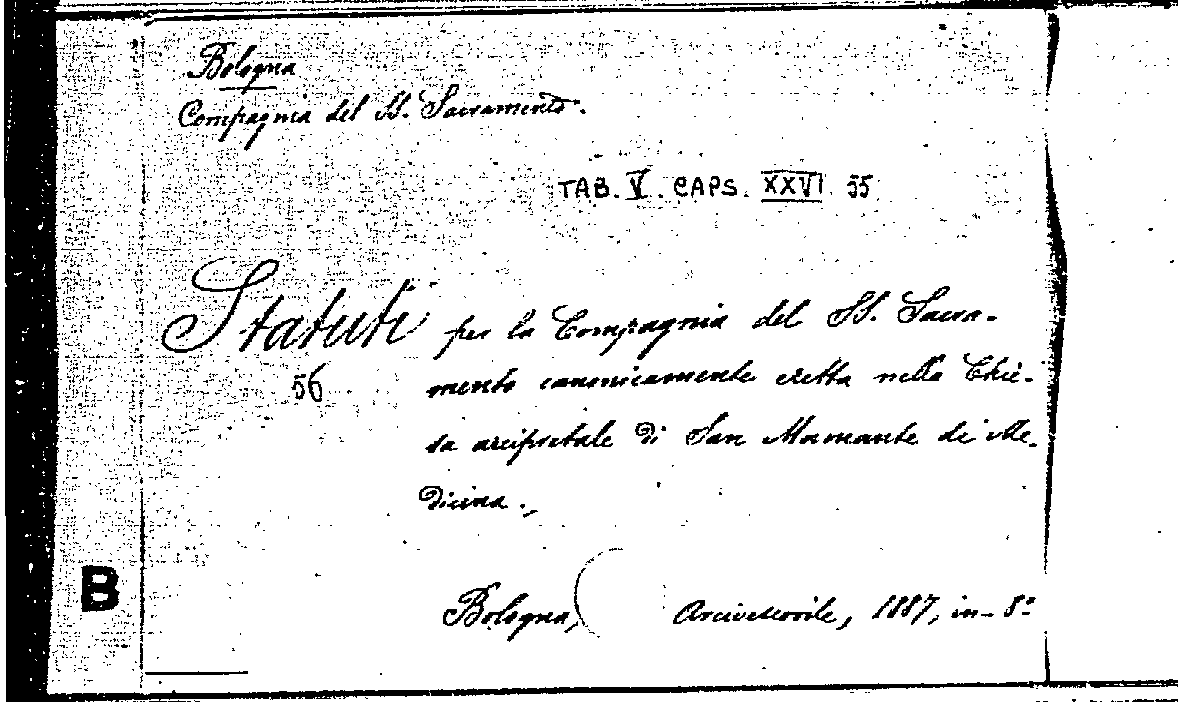 Bologna
Compagnia del SS. Sacramento.
TAB. V. CAPS. XXVI. 55
Statuti per la Compagnia del SS. Sacra-
56 mento canonicamente eretta nella Chie-
sa arcipretale di San Mamante di Me-
dicina.,
B
Bologna, Arcivescovile, 1887, in-8°